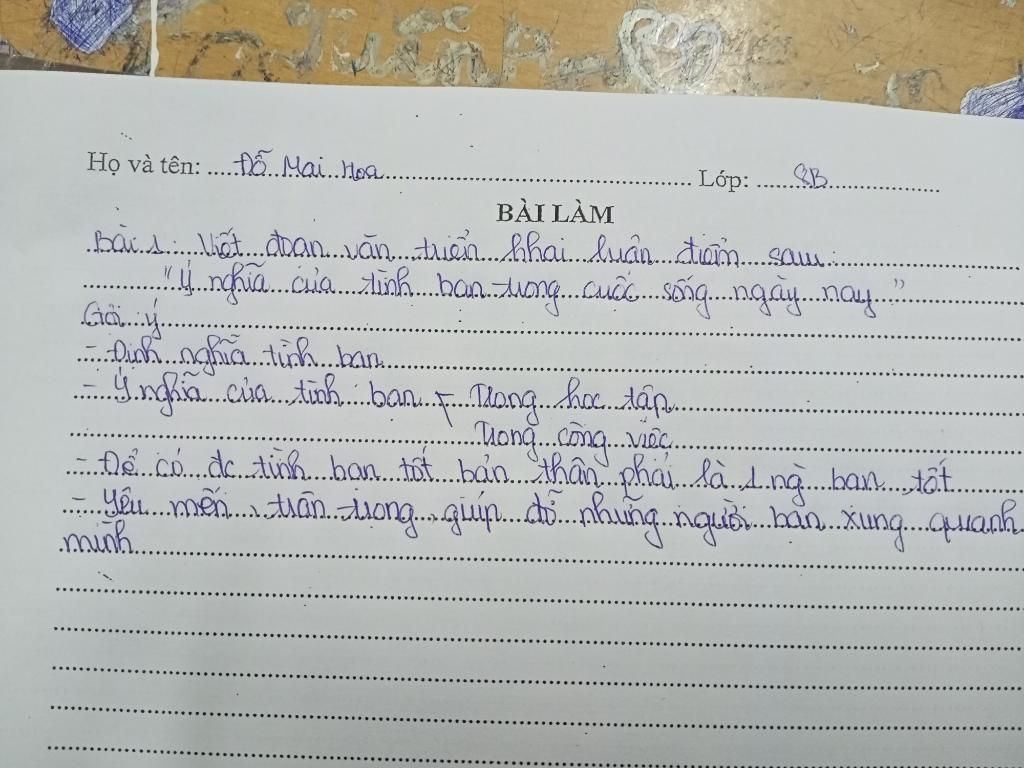 Họ và tên: Đỗ Mai Hoa Lớp: 8B
BÀI LÀM
Bài 1: Viết đoạn văn triển khai luận điểm sau:
"Ý nghĩa của tình bạn trong cuộc sống ngày nay"
Gợi ý
- Định nghĩa tình bạn
- Ý nghĩa của tình bạn + Trong học tập
Trong công việc
- Để có đc tình bạn tốt bản thân phải là 1 ng bạn tốt
- Yêu mến, trân trọng, giúp đỡ những người bạn xung quanh
mình